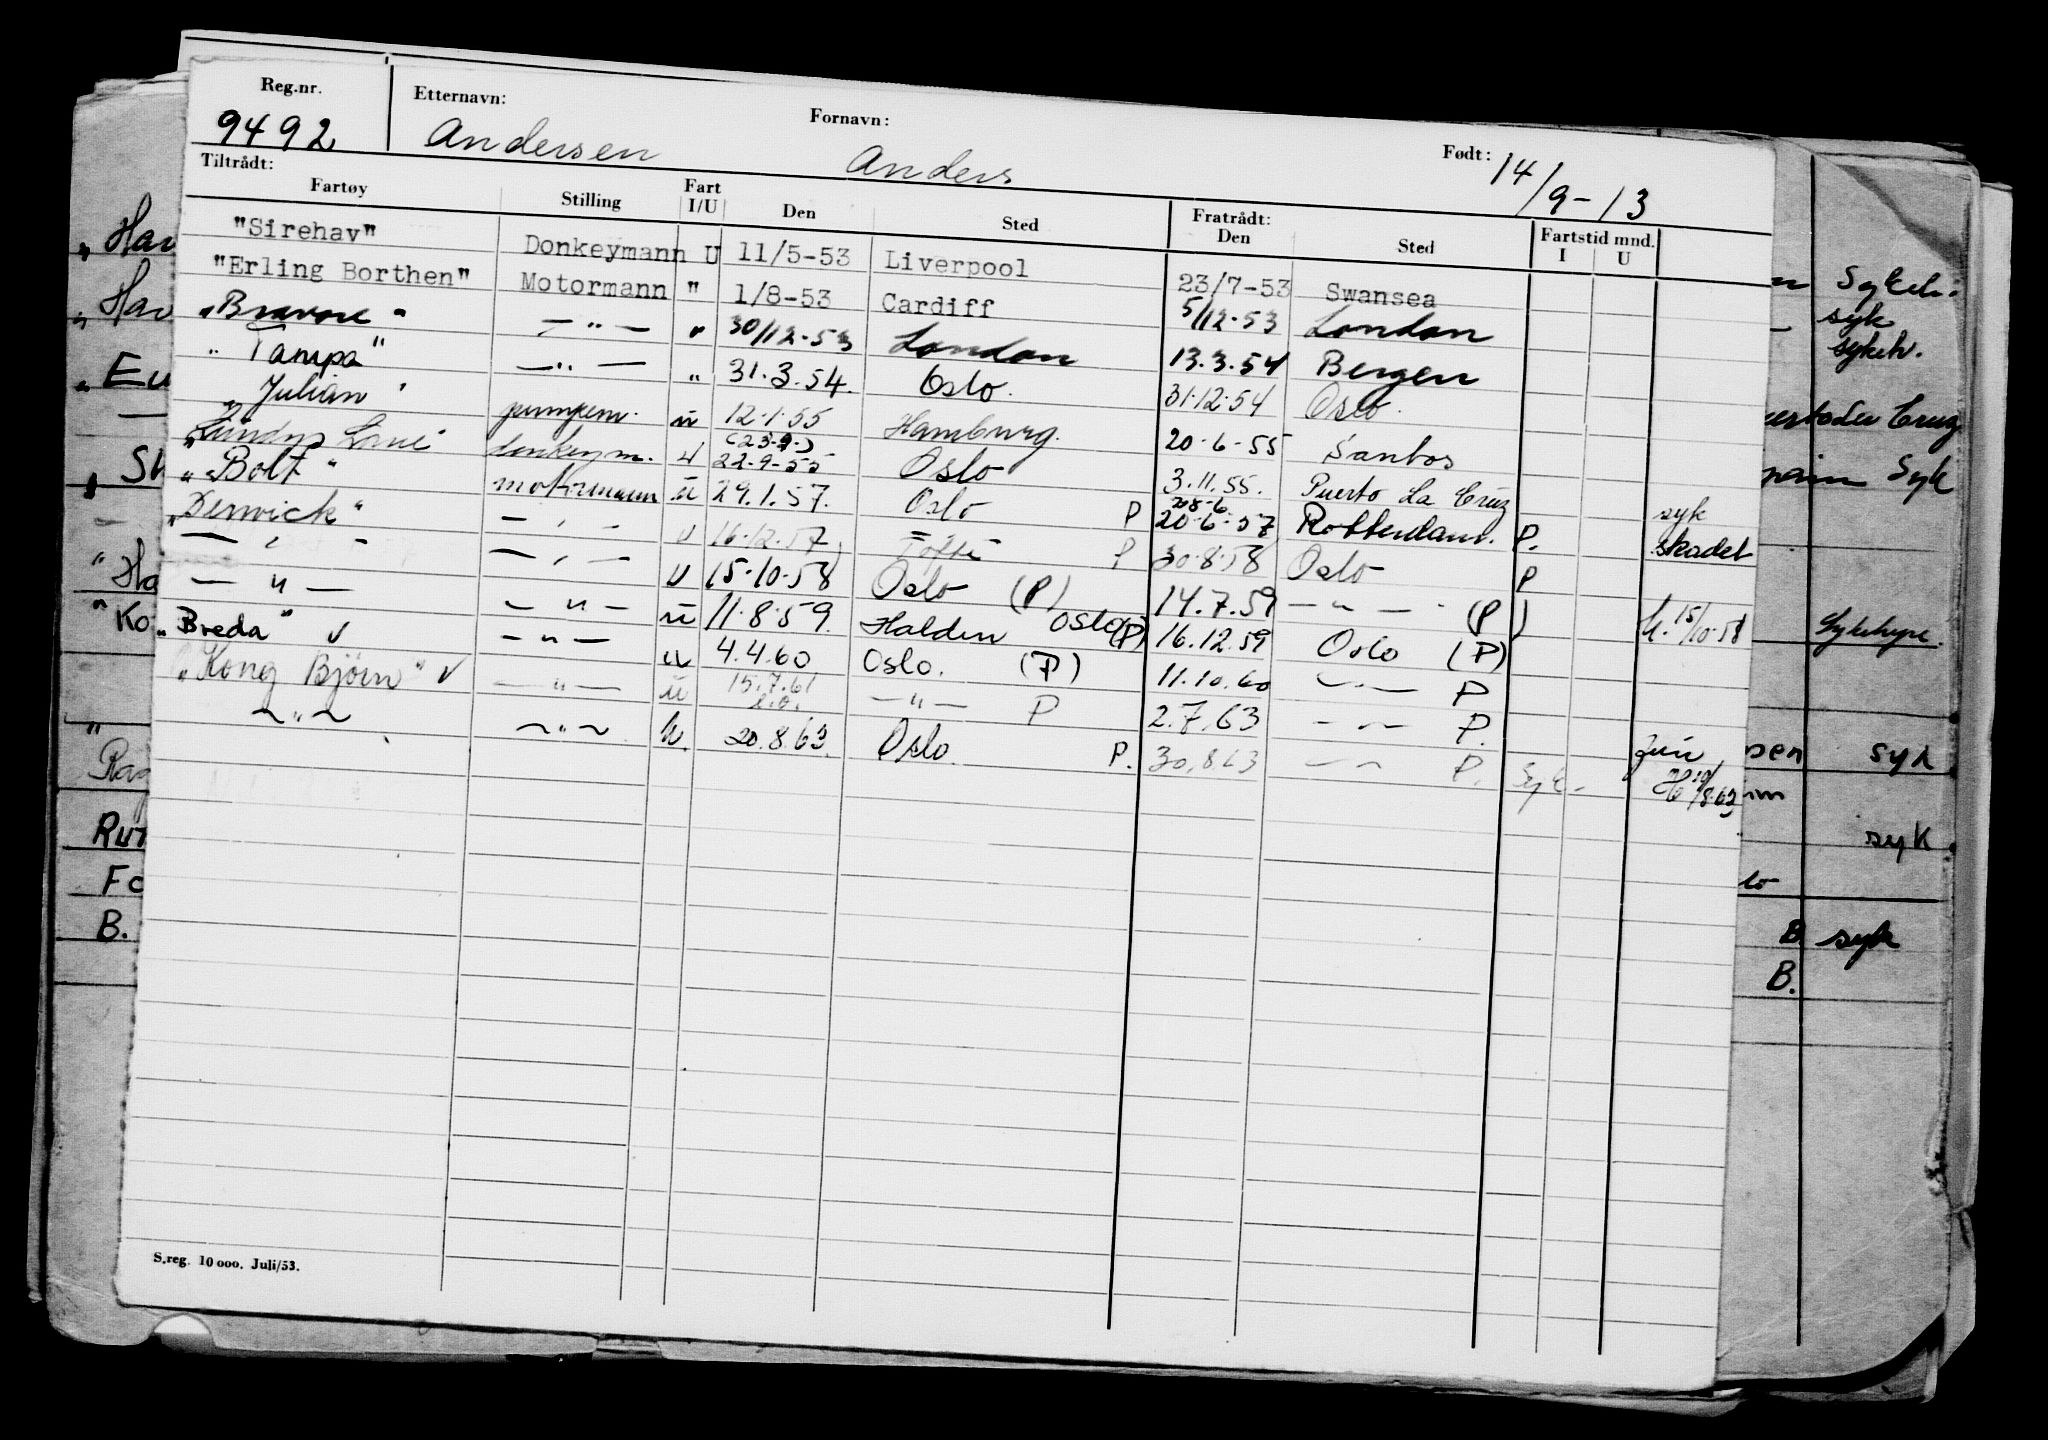 Reg.nr. Etternavn: Fornavn: Født:
9492 Andersen Anders 14/9-13
Tiltrådt: Fratrådt:
Fartøy Stilling Fart I/U Den Sted Den Sted Fartstid mnd. I U
"Sirehav" Donkeymann U 11/5-53 Liverpool 23/7-53 Swansea
"Erling Borthen" Motormann " 1/8-53 Cardiff 5/12-53 London
"Bravore" — " — " 30/12-53 London 13.3.54 Bergen
"Tampa" — " — " 31.3.54. Oslo. 31.12.54 Oslo.
"Julian" pumpem. u 12.1.55 Hamburg. 20-6-55 Santos
donkeym. u (23-9-) 22-9-55 Oslo 3.11.55. Puerto La Cruz syk
"Bolt" motormann u 29.1.57. Oslo P 20-6-57 Rotterdam. P. skadet
"Derwick" — " — u 16.12.57 Tofte P 30.8.58 Oslo P
— " — — " — u 15.10.58 Oslo (P) 14.7.59 — " — (P) h. 15/10.58
— " — — " — u 11.8.59. Halden Oslo (P) 16.12.59 Oslo (P)
"Breda" v — " — u 4.4.60 Oslo. (P) 11.10.60 — " — P
"Kong Bjørn" v — " — u 15.7.61 — " — P 2.7.63 — " — P.
— " — — " — u. 20.8.63 Oslo. P. 30.8.63 — " — P. Syk.
S.reg. 10 000. Juli/53.
Sykeh.
syk
sykeh.
Cruz
Syk
syk
syk
B syk
B.